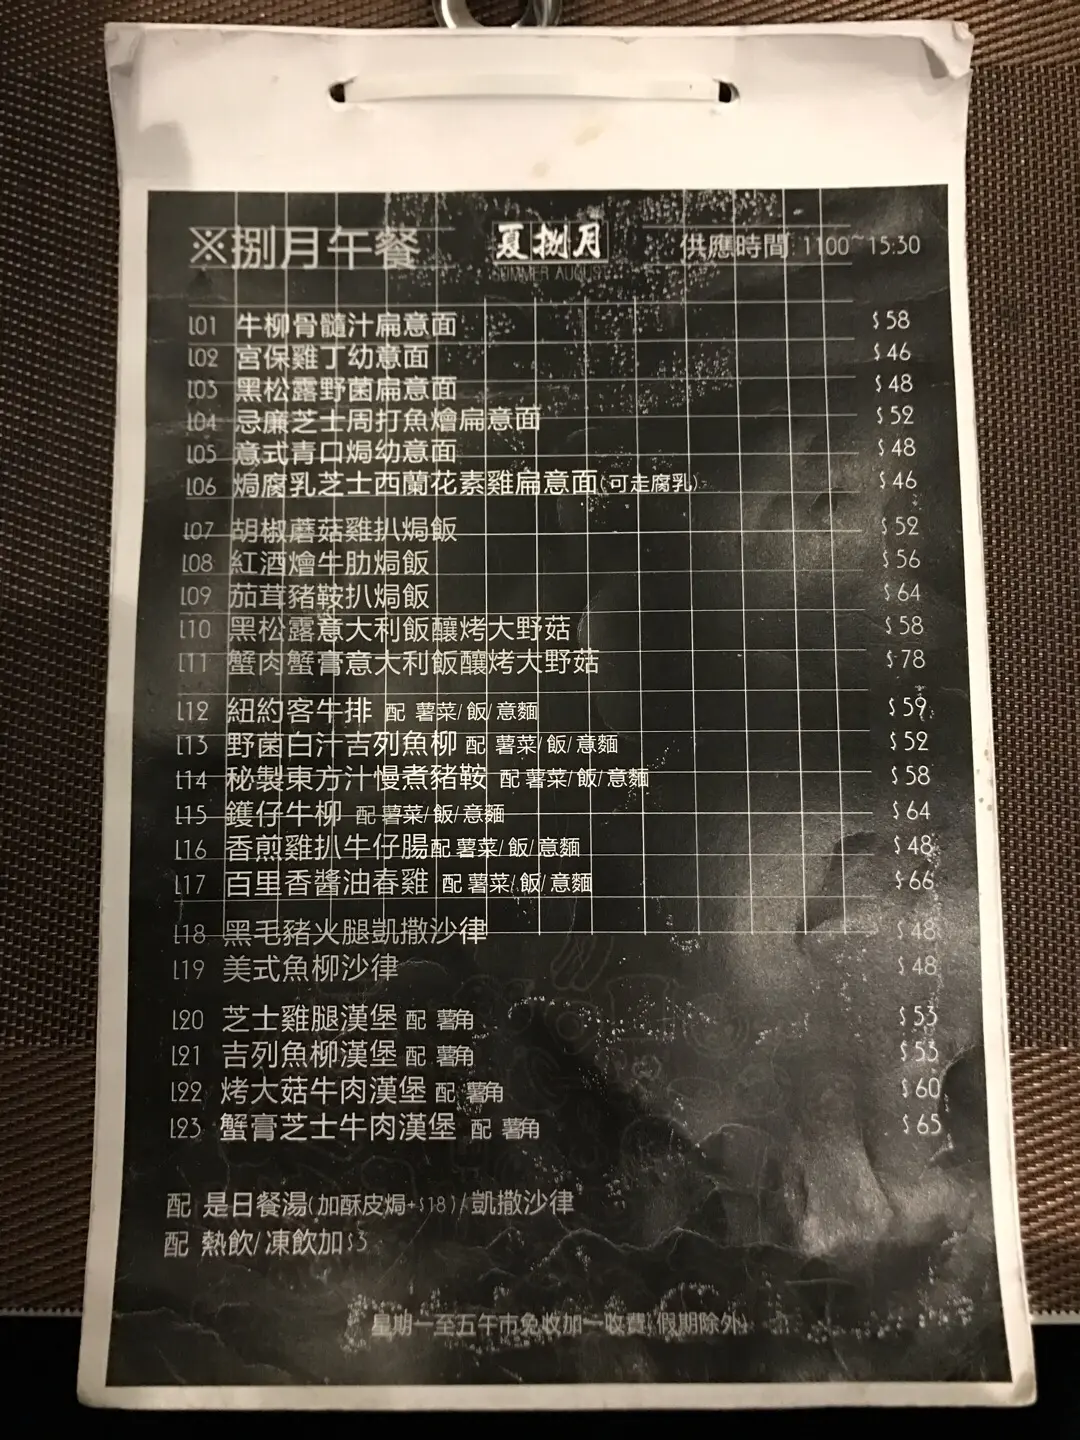 ※捌月午餐
夏捌月
SUMMER AUGUST
供應時間 1100~15:30
L01 牛柳骨髓汁扁意面 $58
L02 宮保雞丁幼意面 $46
L03 黑松露野菌扁意面 $48
L04 忌廉芝士周打魚燴扁意面 $52
L05 意式青口焗幼意面 $48
L06 焗腐乳芝士西蘭花素雞扁意面(可走腐乳) $46
L07 胡椒蘑菇雞扒焗飯 $52
L08 紅酒燴牛肋焗飯 $56
L09 茄茸豬鞍扒焗飯 $64
L10 黑松露意大利飯釀烤大野菇 $58
L11 蟹肉蟹膏意大利飯釀烤大野菇 $78
L12 紐約客牛排 配 薯菜/飯/意麵 $59
L13 野菌白汁吉列魚柳 配 薯菜/飯/意麵 $52
L14 秘製東方汁慢煮豬鞍 配 薯菜/飯/意麵 $58
L15 鑊仔牛柳 配 薯菜/飯/意麵 $64
L16 香煎雞扒牛仔腸配 薯菜/飯/意麵 $48
L17 百里香醬油春雞 配 薯菜/飯/意麵 $66
L18 黑毛豬火腿凱撒沙律 $48
L19 美式魚柳沙律 $48
L20 芝士雞腿漢堡 配 薯角 $53
L21 吉列魚柳漢堡 配 薯角 $53
L22 烤大菇牛肉漢堡 配 薯角 $60
L23 蟹膏芝士牛肉漢堡 配 薯角 $65
配 是日餐湯(加酥皮焗+$18)/凱撒沙律
配 熱飲/凍飲加$3
星期一至五午市免收加一收費(假期除外)